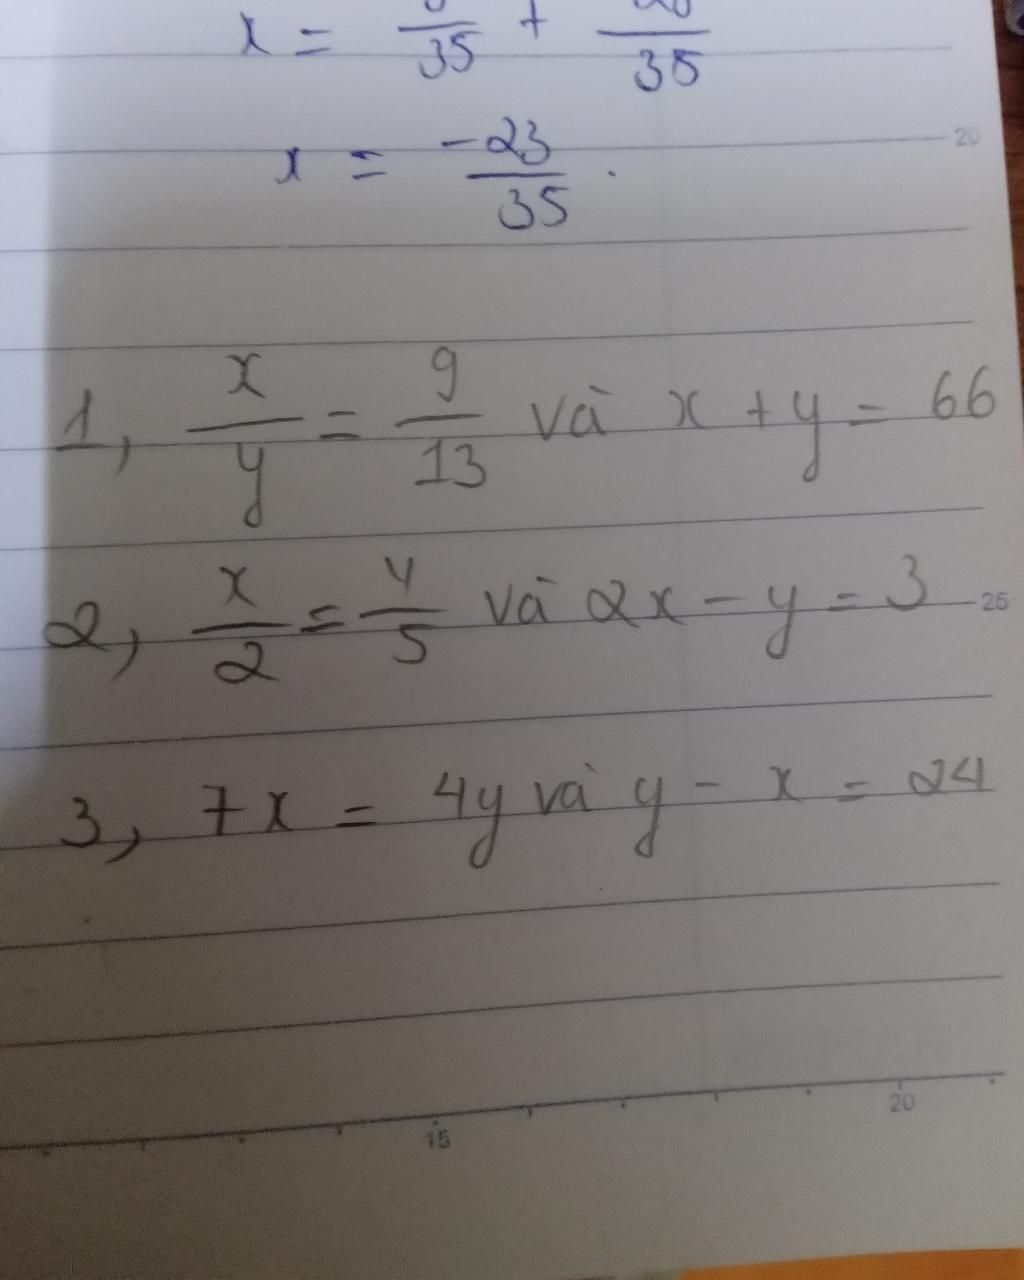 x = /35 + /35
x = -23/35.
20
1, x/y = 9/13 và x + y = 66
2, x/2 = y/5 và 2x - y = 3
25
3, 7x = 4y và y - x = 24
15 20